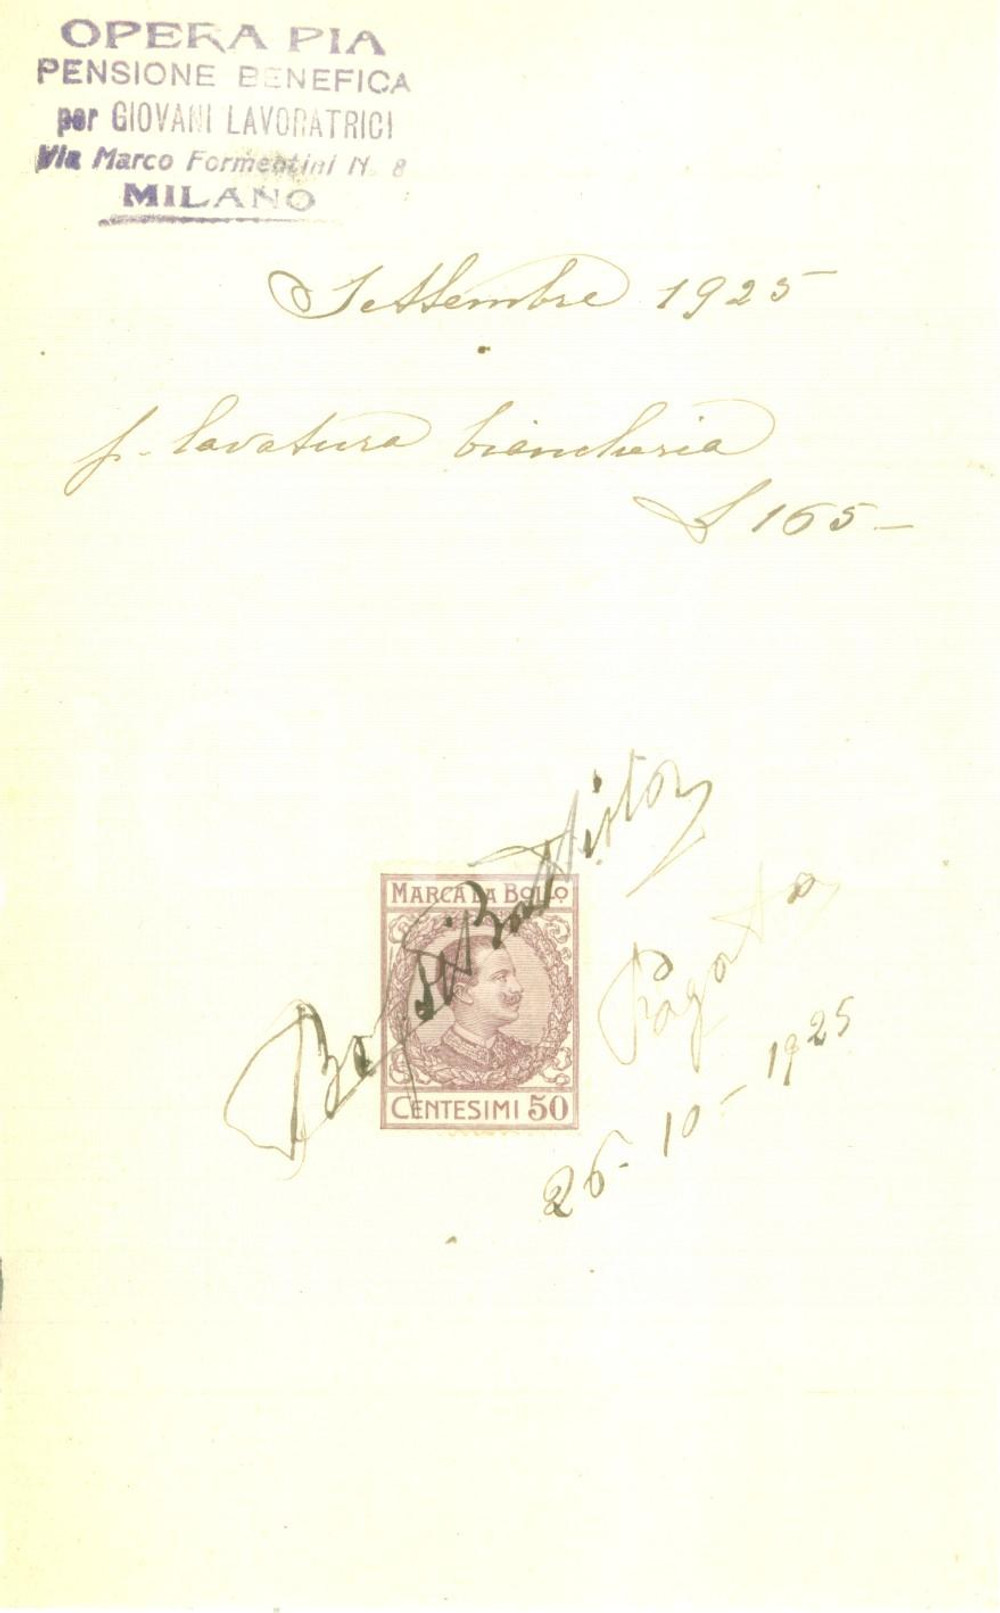 OPERA PIA
PENSIONE BENEFICA
per GIOVANI LAVORATRICI
Via Marco Formentini N. 8
MILANO
Settembre 1925
p. lavatura biancheria
£ 165-
MARCA DA BOLLO
CENTESIMI 50
Pagato
26-10-1925